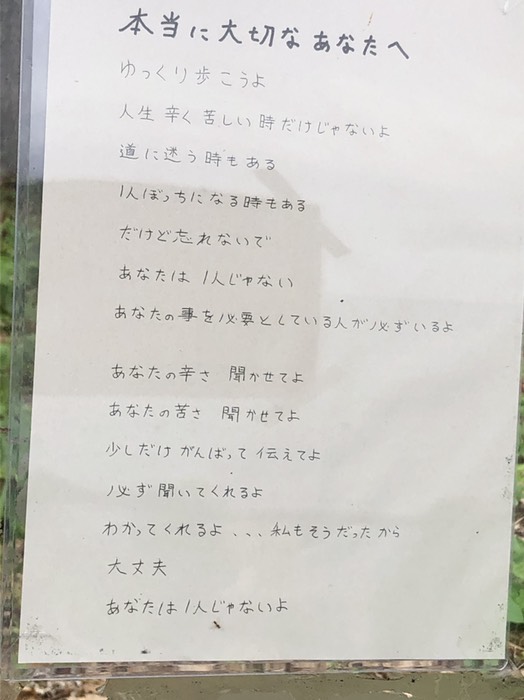 本当に大切なあなたへ
ゆっくり歩こうよ
人生辛く苦しい時だけじゃないよ
道に迷う時もある
1人ぼっちになる時もある
だけど忘れないで
あなたは1人じゃない
あなたの事を必要としている人が必ずいるよ
あなたの辛さ 聞かせてよ
あなたの苦さ 聞かせてよ
少しだけがんばって伝えてよ
必ず聞いてくれるよ
わかってくれるよ、、、私もそうだったから
大丈夫
あなたは1人じゃないよ